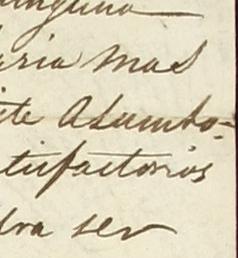 ninguna
aria mas
ite asunto-
tisfactorios
dra ser